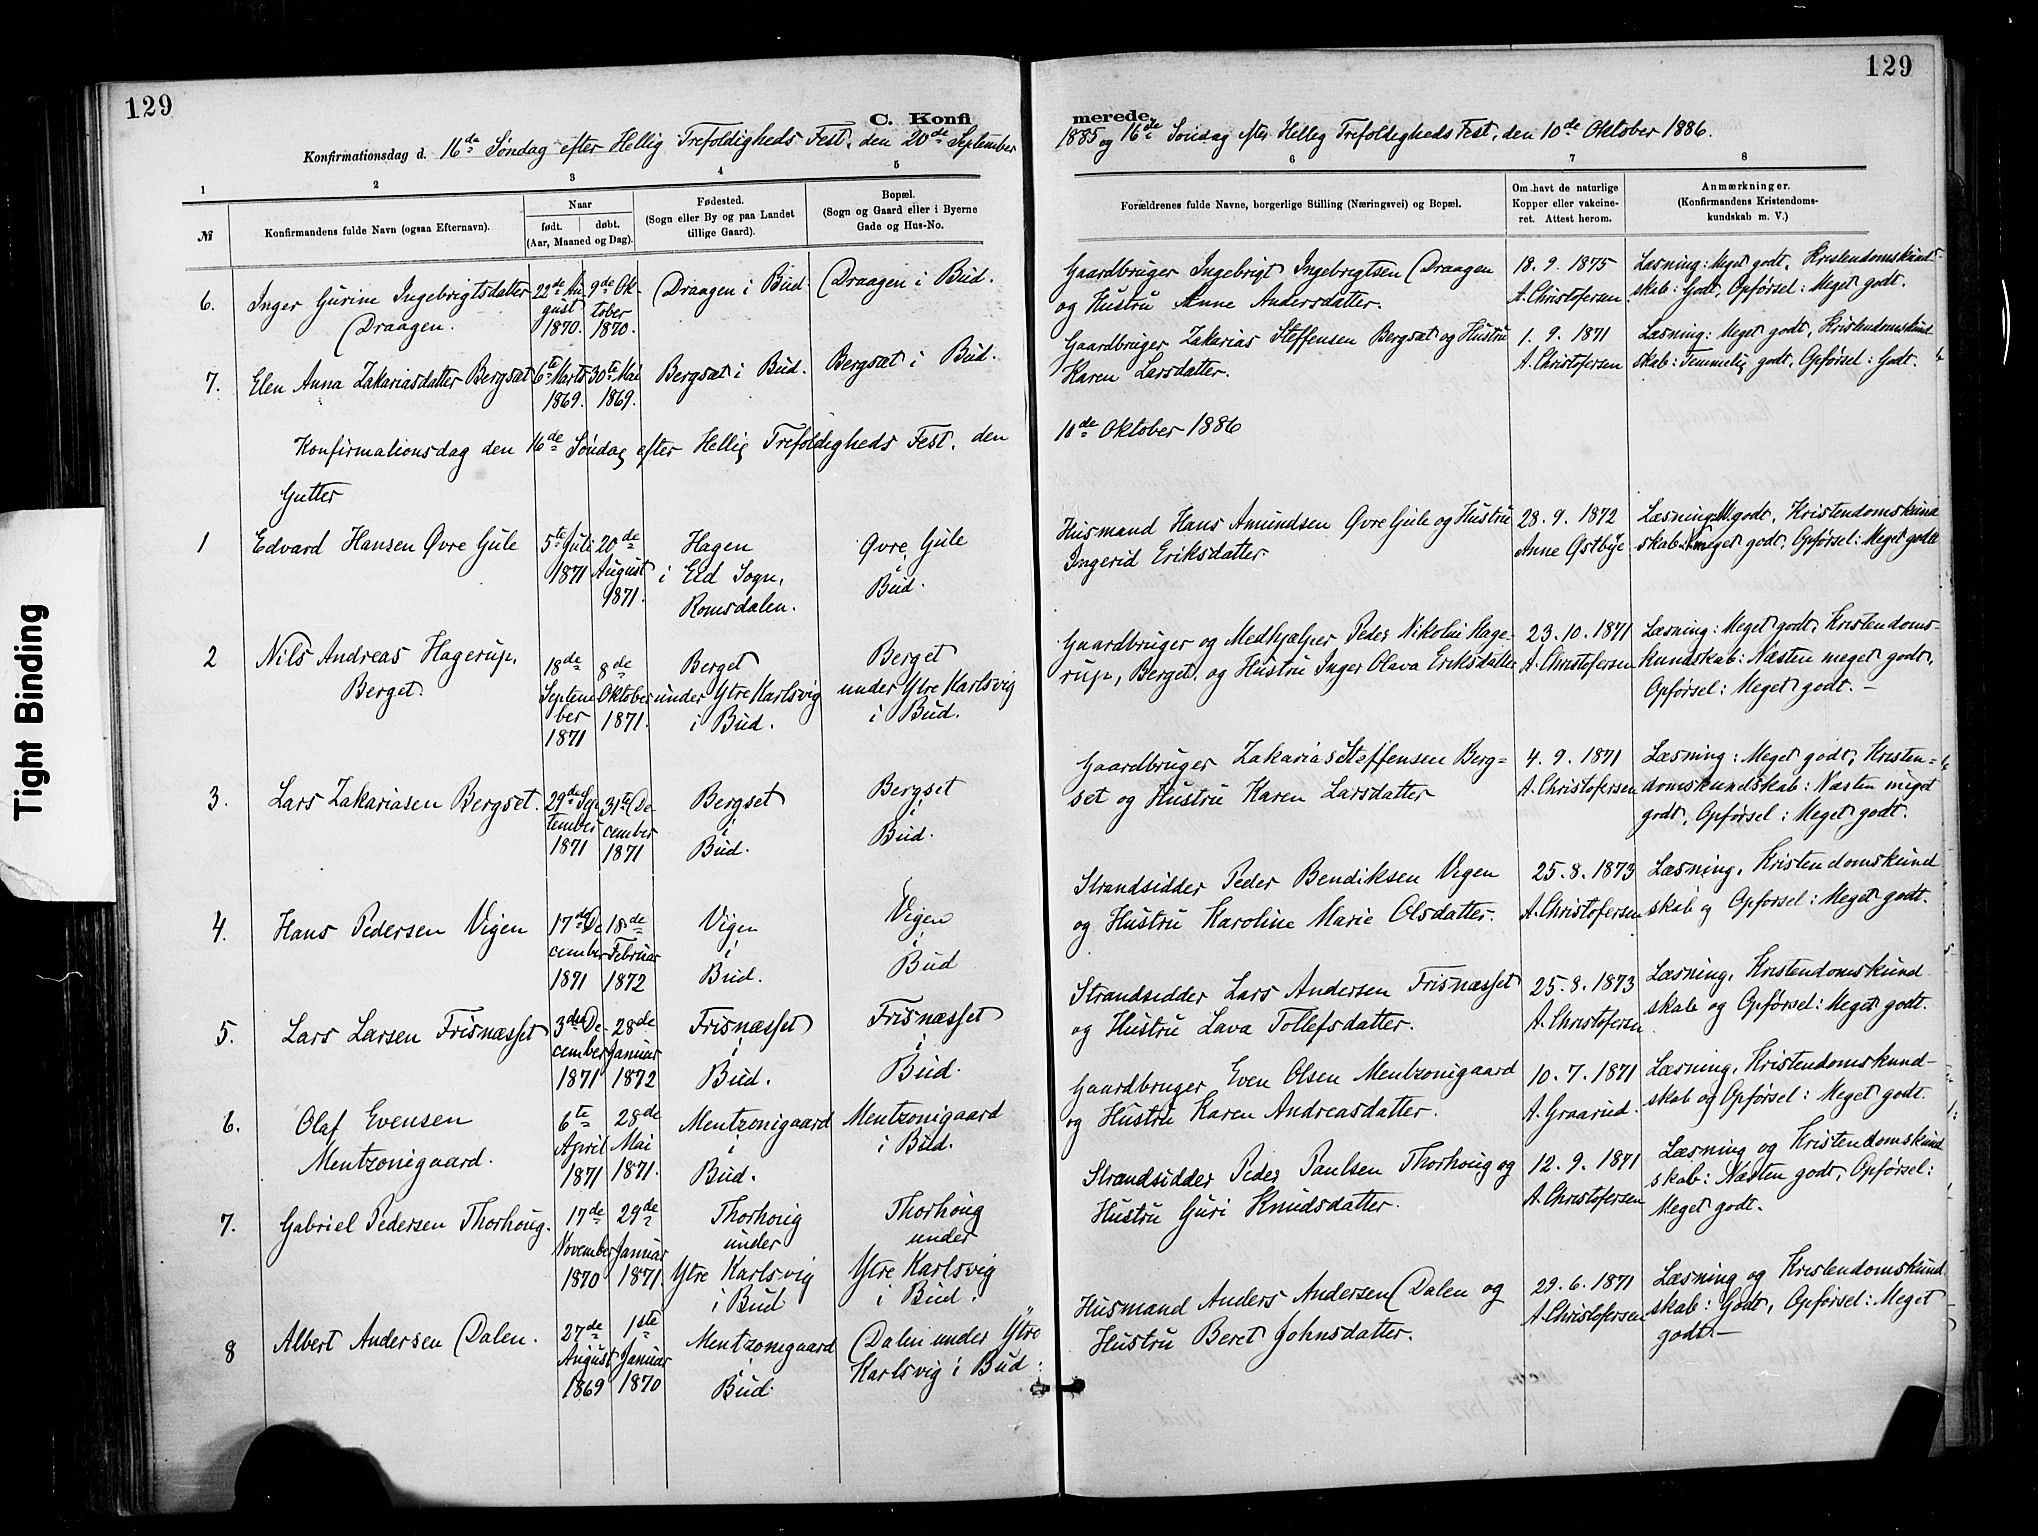 129
129
C. Konfi
merede.
Konfirmationsdag d. 16de Søndag efter Hellig Trefoldigheds Fest, den 20de September
1885 og 16de Søndag efter Hellig Trefoldigheds Fest, den 10de Oktober 1886.
1 2 3 4 5
6 7 8
№
Konfirmandens fulde Navn (ogsaa Efternavn).
Naar
født. døbt.
(Aar, Maaned og Dag).
Fødested.
(Sogn eller By og paa Landet
tillige Gaard).
Bopæl.
(Sogn og Gaard eller i Byerne
Gade og Hus-No.
Forældrenes fulde Navne, borgerlige Stilling (Næringsvei) og Bopæl.
Om havt de naturlige
Kopper eller vakcine-
ret. Attest herom.
Anmærkninger.
(Konfirmandens Kristendoms-
kundskab m. V.)
6.
Inger Gurine Ingebrigtsdatter
Draagen.
22de Au
gust
1870.
9de Ok-
tober
1870.
Draagen i Bud.
Draagen i Bud.
Gaardbruger Ingebrigt Ingebrigtsen Draagen
og Hustru Anne Andersdatter.
18. 9. 1875
A. Christofersen
Læsning: Meget godt, Kristendomskund-
skab: Godt, Opførsel: Meget godt.
7.
Elen Anna Zakariasdatter Bergsæt
6te Marts
1869.
30te Mai
1869.
Bergsæt i Bud.
Bergsæt i Bud.
Gaardbruger Zakarias Steffensen Bergsæt og Hustru
Karen Larsdatter.
1. 9. 1871
A. Christofersen
Læsning: Meget godt, Kristendomskund
skab: Temmelig godt, Opførsel: Godt.
Konfirmationsdag den 16de Søndag efter Hellig Trefoldigheds Fest, den
10de Oktober 1886
Gutter
1
Edvard Hansen Øvre Gule
5te Juli
1871
20de
August
1871.
Hagen
i Eid Sogn,
Romsdalen.
Øvre Gule
i
Bud.
Husmand Hans Amundsen Øvre Gule og Hustru
Ingerid Eriksdatter
28. 9. 1872
Anne Østbye
Læsning: M. godt, Kristendomskund
skab: meget godt, Opførsel: Meget godt
2
Nils Andreas Hagerup,
Berget.
18de
Septem
ber
1871
8de
Oktober
1871.
Berget
under Ytre Karlsvig
i Bud.
Berget
under Ytre Karlsvig
i Bud.
Gaardbruger og Medhjælper Peder Nikolai Hage-
rup, Berget, og Hustru Inger Olava Eriksdatter
23. 10. 1871
A. Christofersen
Læsning: Meget godt, Kristendoms-
kundskab: Næsten meget godt,
Opførsel: Meget godt. –
3.
Lars Zakariasen Bergset.
29de Sep
tember
1871
31te De
cember
1871
Bergset
i
Bud.
Bergset
i
Bud.
Gaardbruger Zakarias Steffensen Berg=
set og Hustru Karen Larsdatter
4. 9. 1871
A. Christofersen
Læsning: Meget godt, Kristen=
domskundskab: Næsten meget
godt, Opførsel: Meget godt.
4.
Hans Pedersen Vigen
17de De
cember
1871
18de
Februar
1872
Vigen
i
Bud.
Vigen
i
Bud
Strandsidder Peder Bendiksen Vegen
og Hustru Karoline Marie Olsdatter.
25. 8. 1873
A. Christofersen
Læsning, Kristendomskund
skab og Opførsel: Meget godt.
5.
Lars Larsen Frisnæsset
3die De-
cember
1871
28de
Januar
1872
Frisnæsset
i
Bud.
Frisnæsset
i
Bud.
Strandsidder Lars Andersen Frisnæsset
og Hustru Lava Tollefsdatter.
25. 8. 1873
A. Christofersen
Læsning, Kristendomskund
skab og Opførsel: Meget godt.
6.
Olaf Evensen
Mentzonigaard.
6te
April
1871
28de
Mai
1871.
Mentzonigaard
i
Bud.
Mentzonigaard
i Bud.
Gaardbruger Even Olsen Mentzonigaard
og Hustru Karen Andreasdatter.
10. 7. 1871
A. Graarud.
Læsning, Kristendomskund-
skab og Opførsel: Meget godt.
7.
Gabriel Pedersen Thorhoug.
17de
November
1870
29de
Januar
1871.
Thorhoug
under
Ytre Karlsvig
i Bud
Thorhoug
under
Ytre Karlsvig
i Bud.
Strandsidder Peder Paulsen Thorhoug og
Hustru Guri Knudsdatter.
12. 9. 1871
A. Christofersen
Læsning og Kristendomskund
skab: Næsten godt, Opførsel:
Meget godt.
8
Albert Andersen Dalen.
27de
August
1869
1ste
Januar
1870
Mentzonigaard
i
Bud.
Dalen under Ytre
Karlsvig i Bud.
Husmand Anders Andersen Dalen og
Hustru Beret Johnsdatter.
29. 6. 1871
A. Christofersen
Læsning og Kristendomskund
skab: Godt, Opførsel: Meget
godt. –
Tight Binding